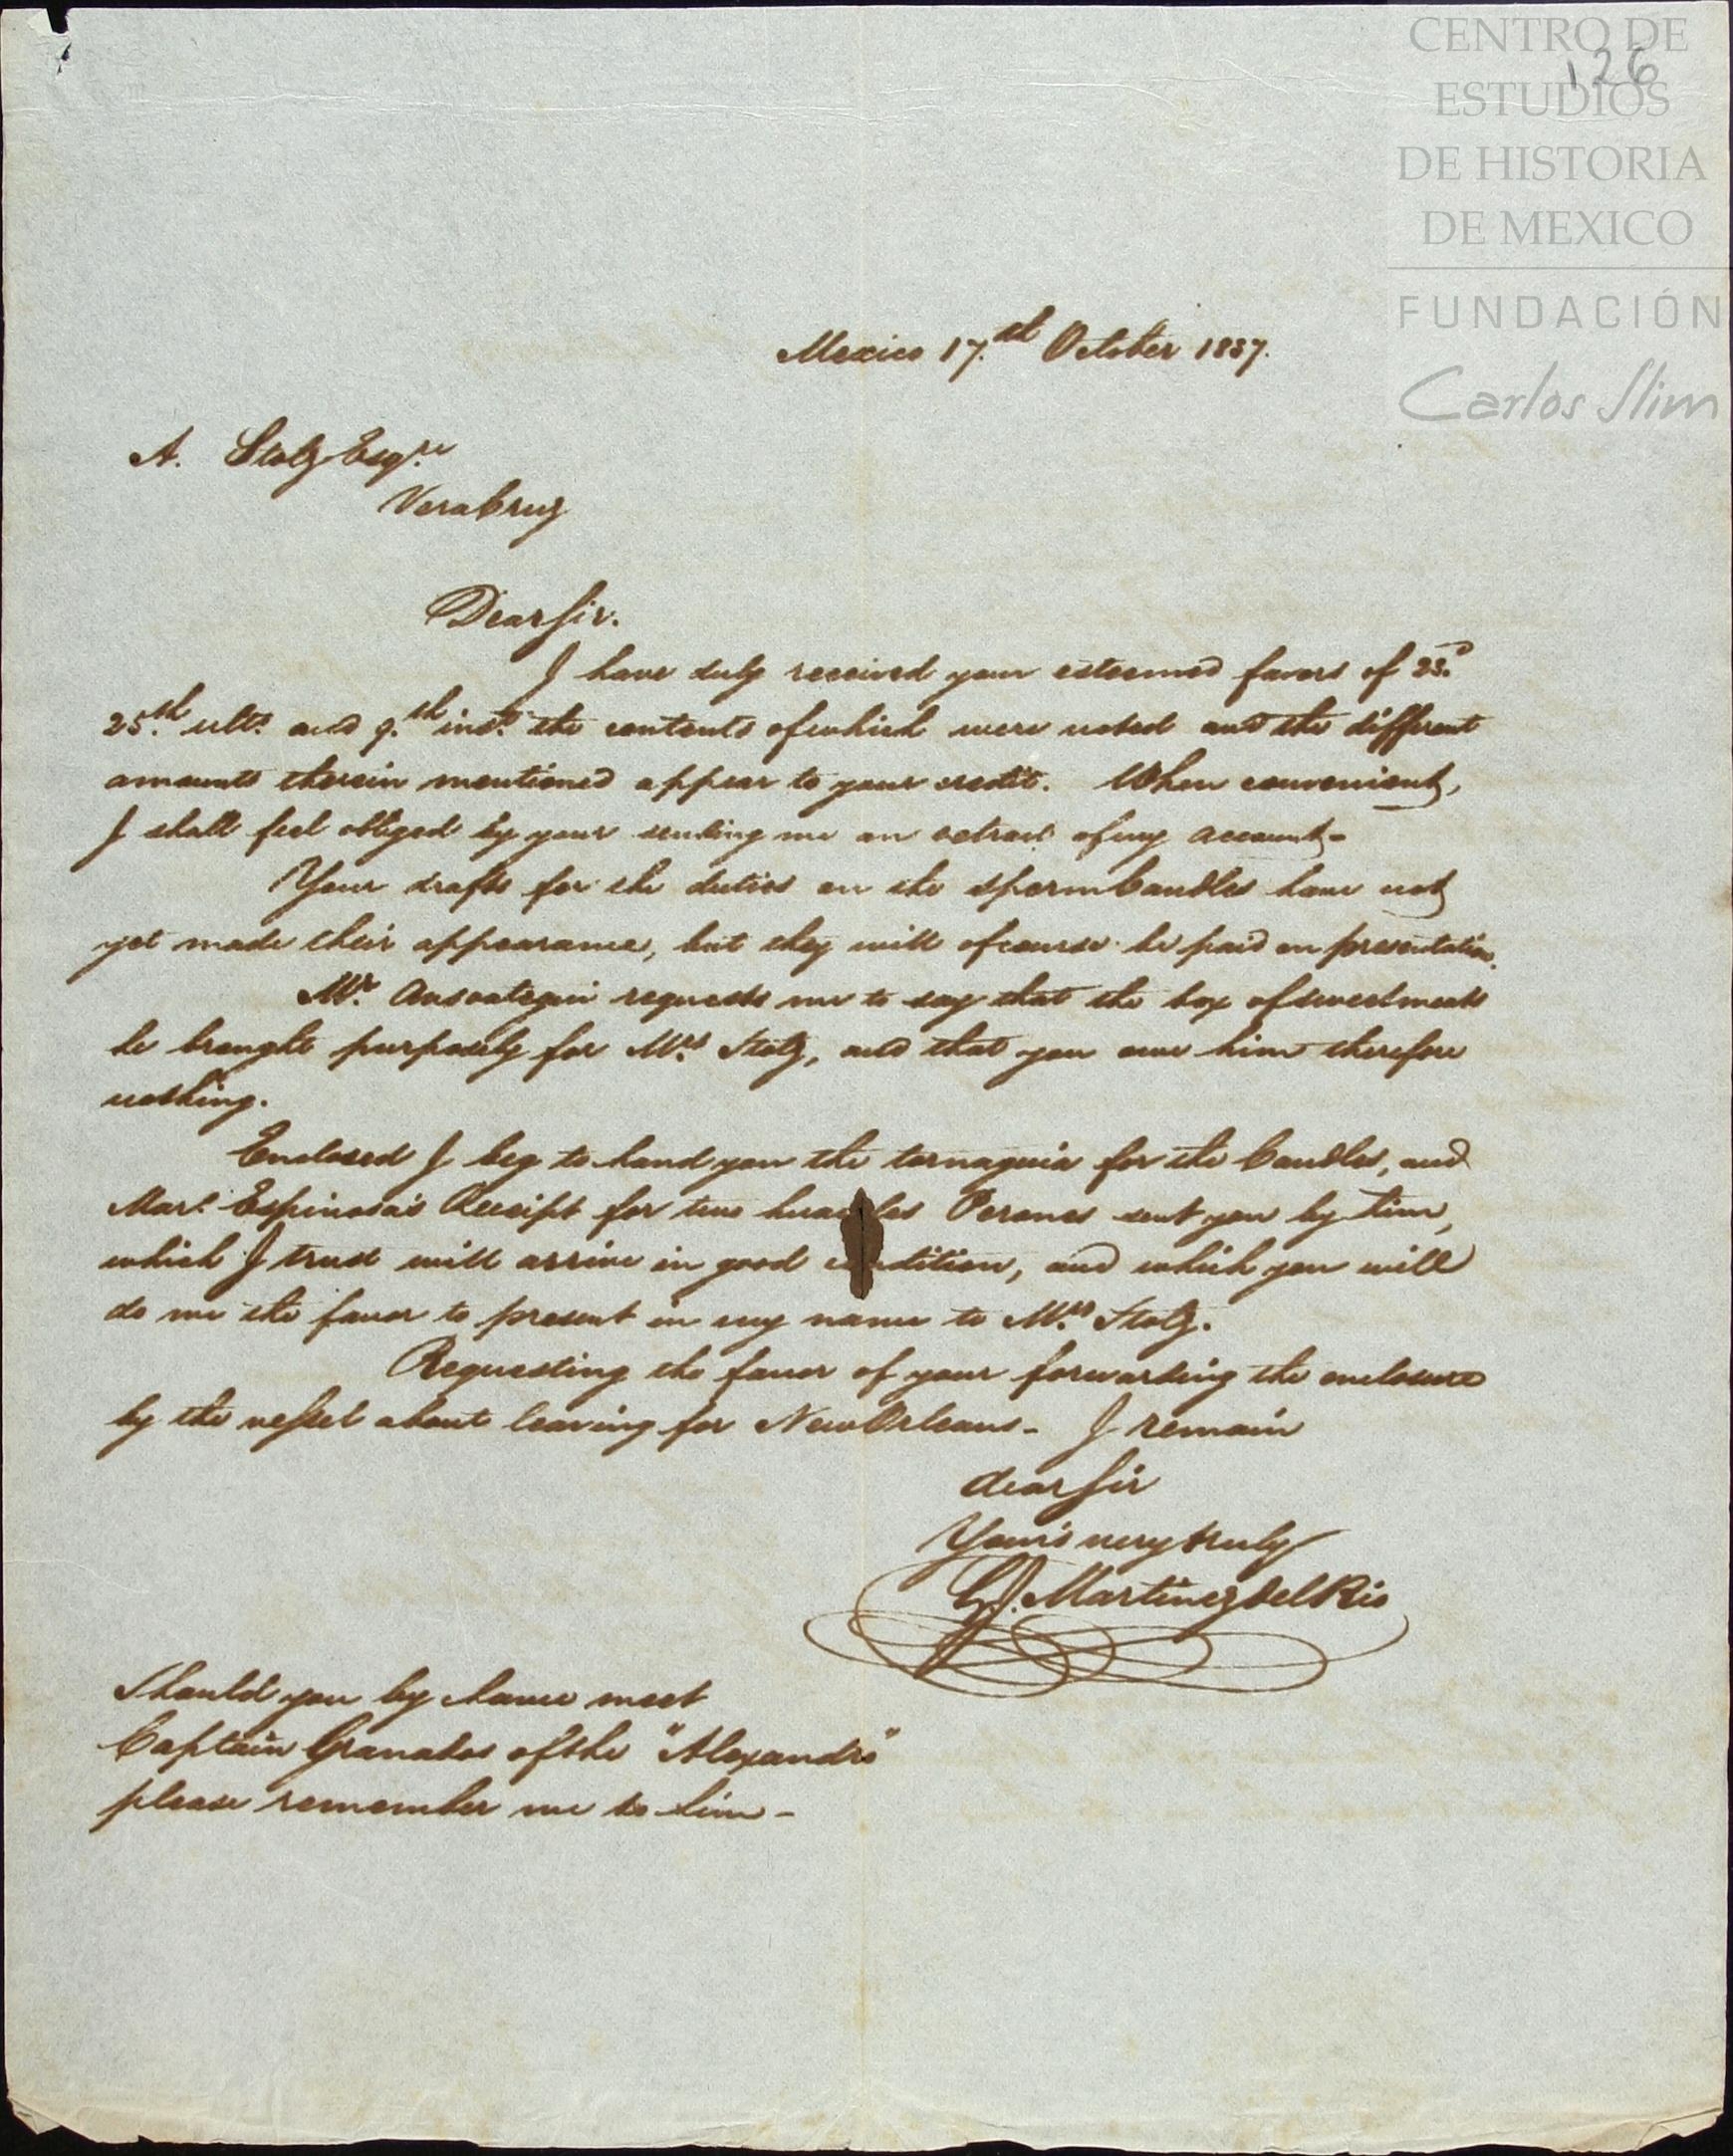 CENTRO DE
ESTUDIOS
DE HISTORIA
DE MEXICO
FUNDACIÓN
Carlos Slim
126
Mexico 17.th October 1837.
A. Stolz Esqre.
VeraCruz
Dear Sir.
I have duly received your esteemed favors of 23.d
25.th ulto. and 9.th inst. the contents of which were noted and the different
amounts therein mentioned appear to your credit. When convenient,
I shall feel obliged by your sending me an extract of my account-
Your drafts for the duties on the sperm Candles have not
yet made their appearance, but they will of course be paid on presentation.
Mr. requests me to say that the box of sweetmeats
he brought purposely for Mrs. Stolz, and that you owe him therefore
nothing.
Enclosed I beg to hand you the tornaguia for the Candles, and
Marl. Espinosa's Receipt for two Perones sent you by him,
which I trust will arrive in good condition, and which you will
do me the favor to present in my name to Mrs. Stolz.
Requesting the favor of your forwarding the enclosure
by the vessel about leaving for New Orleans- I remain
dear Sir
Your's very truly
Martinez del Rio
Should you by chance meet
Captain Granados of the "Alexandre"
please remember me to him-